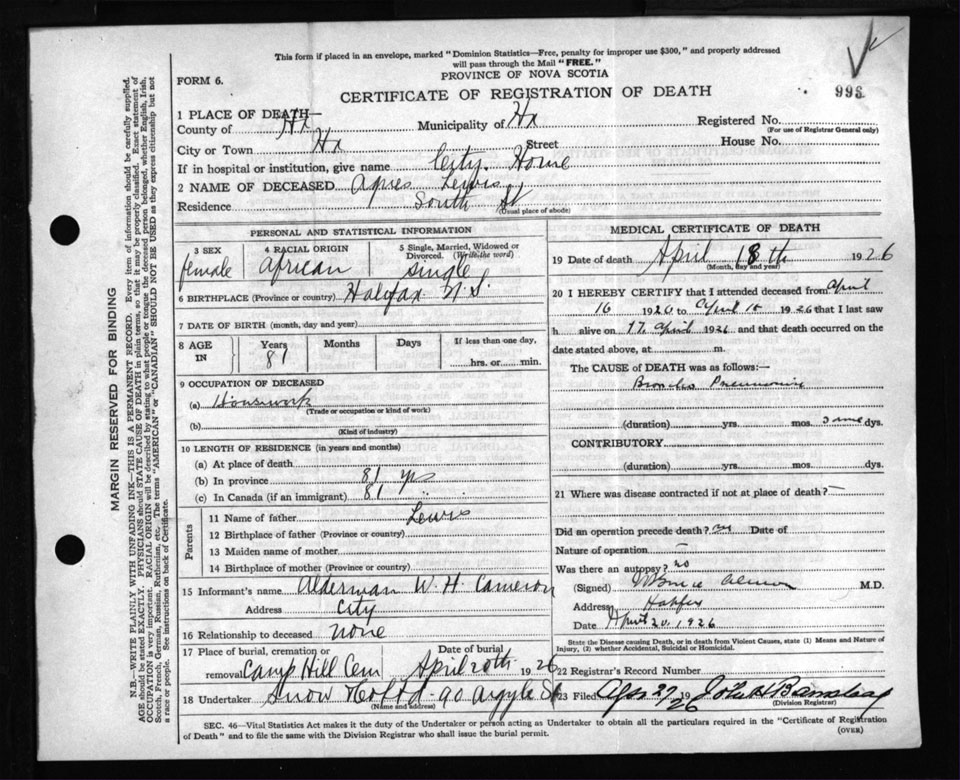 This form if placed in an envelope, marked "Dominion Statistics—Free, penalty for improper use $300," and properly addressed
will pass through the Mail "FREE."
PROVINCE OF NOVA SCOTIA
FORM 6.
CERTIFICATE OF REGISTRATION OF DEATH
1 PLACE OF DEATH—
County of Hx Municipality of Hx Registered No.
(For use of Registrar General only)
City or Town Hx Street House No.
If in hospital or institution, give name City Home
2 NAME OF DECEASED Agnes Lewis
Residence South St
(Usual place of abode)
PERSONAL AND STATISTICAL INFORMATION
3 SEX female
4 RACIAL ORIGIN African
5 Single, Married, Widowed or
Divorced. (Write the word)
single
6 BIRTHPLACE (Province or country) Halifax N.S.
7 DATE OF BIRTH (month, day and year)
8 AGE IN Years 81 Months Days If less than one day,
hrs. or min.
9 OCCUPATION OF DECEASED
(a) Housework
(Trade or occupation or kind of work)
(b)
(Kind of industry)
10 LENGTH OF RESIDENCE (in years and months)
(a) At place of death
(b) In province 81 yrs
(c) In Canada (if an immigrant) 81 "
Parents
11 Name of father Lewis
12 Birthplace of father (Province or country)
13 Maiden name of mother
14 Birthplace of mother (Province or country)
15 Informant's name Alderman W. H. Cameron
Address City
16 Relationship to deceased none
17 Place of burial, cremation or
removal Camp Hill Cem
Date of burial
April 20th 1926
18 Undertaker Snow & Co Ltd - 90 Argyle St
(Name and address)
MEDICAL CERTIFICATE OF DEATH
19 Date of death April 18th 1926
(Month, day and year)
20 I HEREBY CERTIFY that I attended deceased from April
16 1926 to April 18 1926 that I last saw
h alive on 17 April 1926 and that death occurred on the
date stated above, at m.
The CAUSE of DEATH was as follows:—
Broncho Pneumonia
(duration) yrs. mos. dys.
CONTRIBUTORY
(duration) yrs. mos. dys.
21 Where was disease contracted if not at place of death? —
Did an operation precede death? no Date of
Nature of operation —
Was there an autopsy? no
(Signed) M.D.
Address Halifax
Date April 20, 1926
State the Disease causing Death, or in death from Violent Causes, state (1) Means and Nature of
Injury, (2) whether Accidental, Suicidal or Homicidal.
22 Registrar's Record Number
23 Filed Apr 27 1926
(Division Registrar)
SEC. 46—Vital Statistics Act makes it the duty of the Undertaker or person acting as Undertaker to obtain all the particulars required in the "Certificate of Registration
of Death" and to file the same with the Division Registrar who shall issue the burial permit.
(OVER)
MARGIN RESERVED FOR BINDING
N.B.—WRITE PLAINLY WITH UNFADING INK—THIS IS A PERMANENT RECORD. Every item of information should be carefully supplied.
AGE should be stated EXACTLY. PHYSICIANS should STATE CAUSE OF DEATH in plain terms, so that it may be properly classified. Exact statement of
OCCUPATION is very important. RACIAL ORIGIN will be described by stating to what people or tongue the deceased person belonged, whether English, Irish,
Scotch, French, German, Russian, Ruthenian, etc. The terms "AMERICAN" or "CANADIAN" SHOULD NOT BE USED as they express citizenship but not
a race or people. See instructions on back of Certificate.